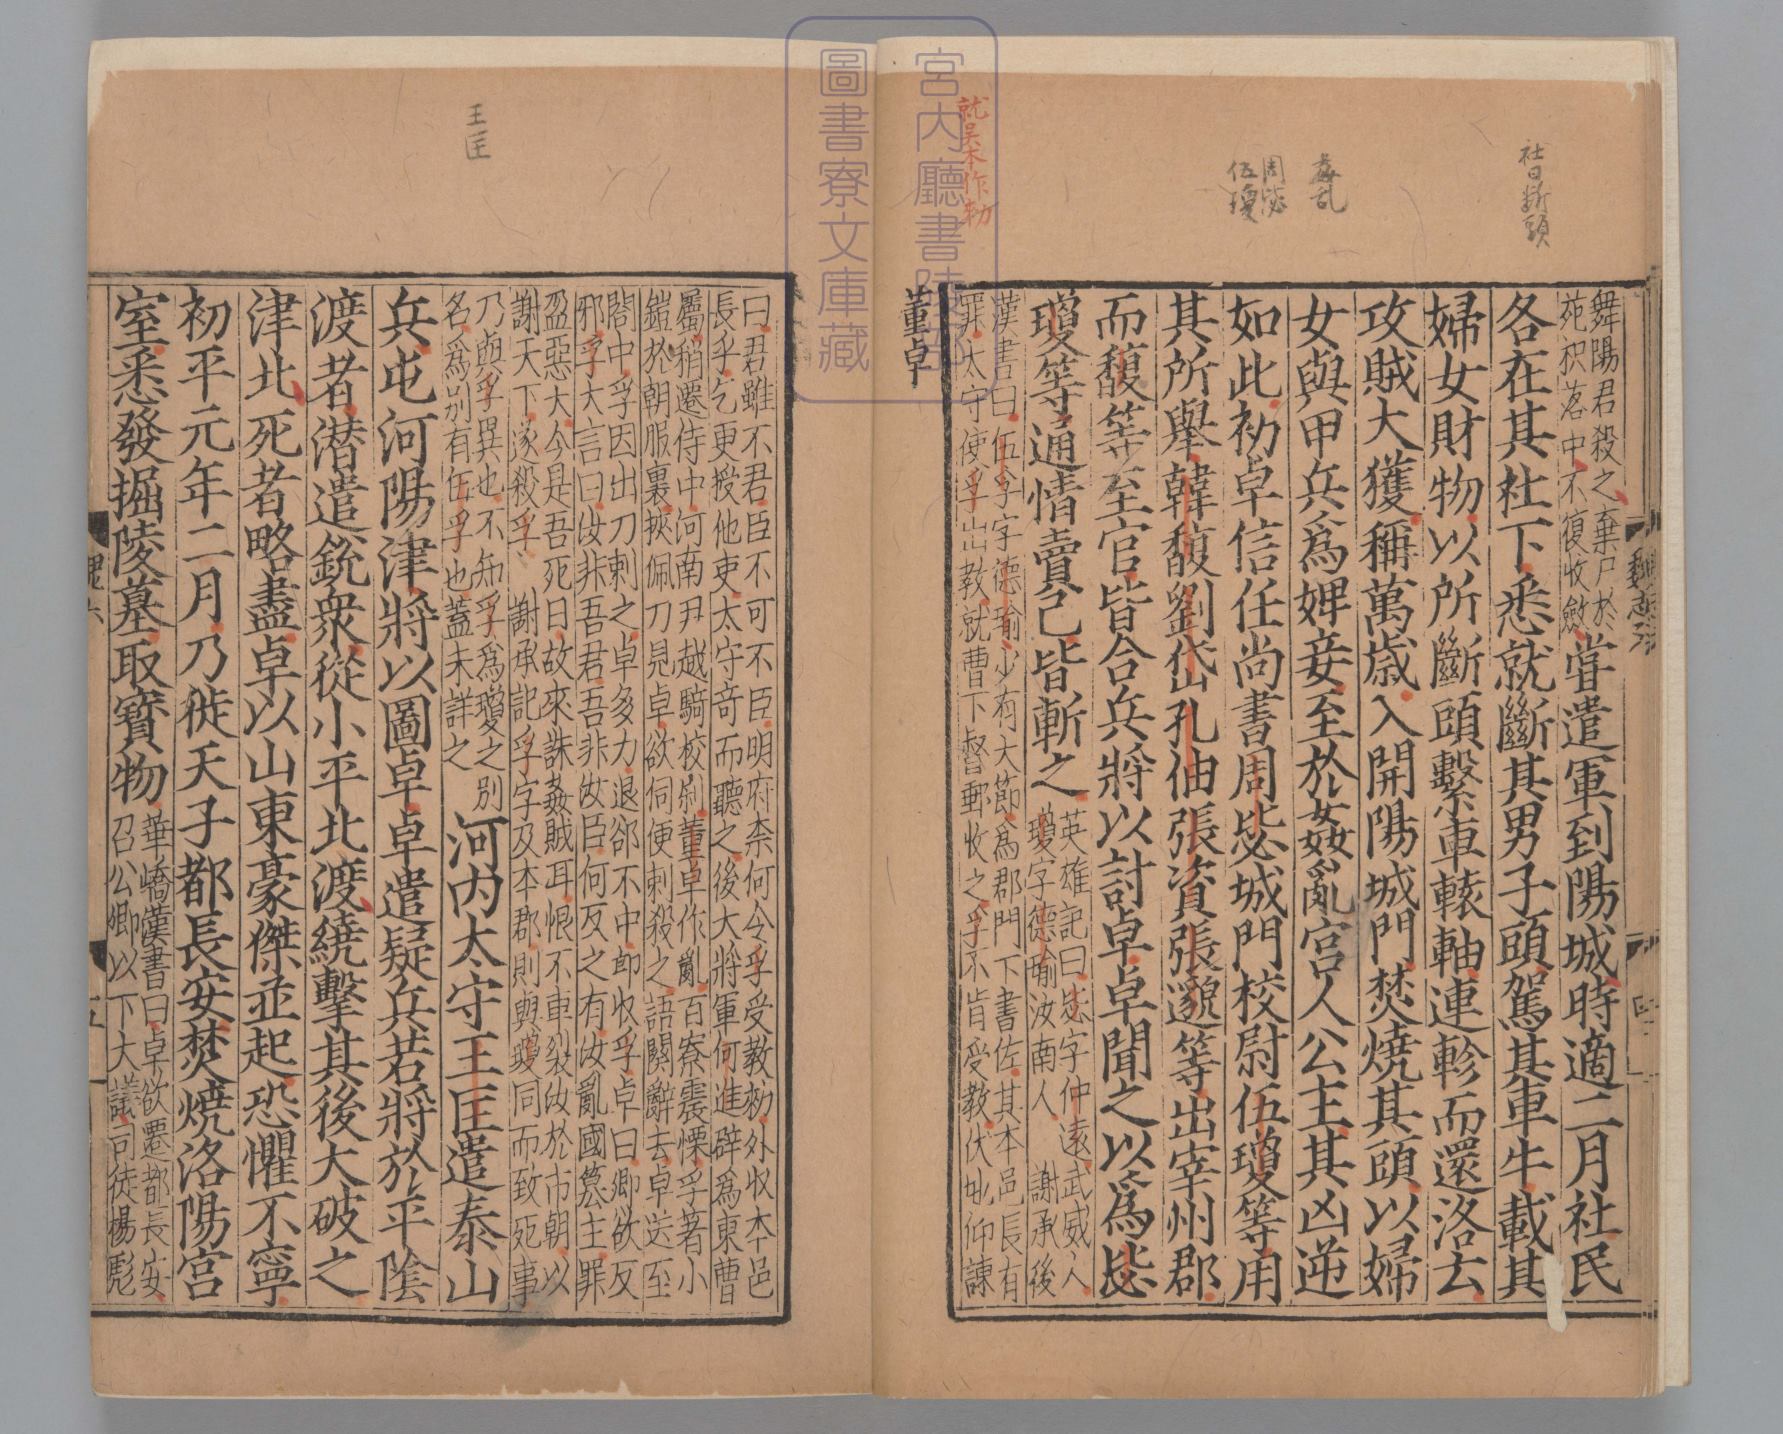 社民斷頭
姦乱
周毖
伍瓊
就吳本作勅
宮内廳書陵部
圖書寮文庫藏
舞陽君殺之棄尸於
苑枳落中不復收斂
嘗遣軍到陽城時適二月社民
各在其社下悉就斷其男子頭駕其車牛載其
婦女財物以所斷頭繫車轅軸連軫而還洛去
攻賊大獲稱萬歲入開陽城門焚燒其頭以婦
女與甲兵爲婢妾至於姦亂宮人公主其凶逆
如此初卓信任尚書周毖城門校尉伍瓊等用
其所舉韓馥劉岱孔伷張資張邈等出宰州郡
而馥等至官皆合兵將以討卓卓聞之以爲毖
瓊等通情賣己皆斬之
英雄記曰毖字仲遠武威人
瓊字德瑜汝南人 謝承後
漢書曰伍孚字德瑜少有大節爲郡門下書佐其本邑長有
罪太守使孚出教就曹下督郵收之孚不肯受教伏地仰諫
董卓
王匡
曰君雖不君臣不可不臣明府柰何令孚受教勑外收本邑
長乎乞更授他吏太守奇而聽之後大將軍何進辟爲東曹
屬稍遷侍中河南尹越騎校尉董卓作亂百寮震慄孚著小
鎧於朝服裏挾佩刀見卓欲伺便刺殺之語闋辭去卓送至
閤中孚因出刀刺之卓多力退郤不中即收孚卓曰卿欲反
邪孚大言曰汝非吾君吾非汝臣何反之有汝亂國簒主罪
盈惡大今是吾死日故來誅姦賊耳恨不車裂汝於市朝以
謝天下遂殺孚 謝承記孚字及本郡則與瓊同而致死事
乃與孚異也不知孚爲瓊之別
名爲別有伍孚也蓋未詳之
河内太守王匡遣泰山
兵屯河陽津將以圖卓卓遣疑兵若將於平陰
渡者潜遣銳衆從小平北渡繞擊其後大破之
津北死者略盡卓以山東豪傑並起恐懼不寧
初平元年二月乃徙天子都長安焚燒洛陽宮
室悉發掘陵墓取寶物
華嶠漢書曰卓欲遷都長安
召公卿以下大議司徒楊彪